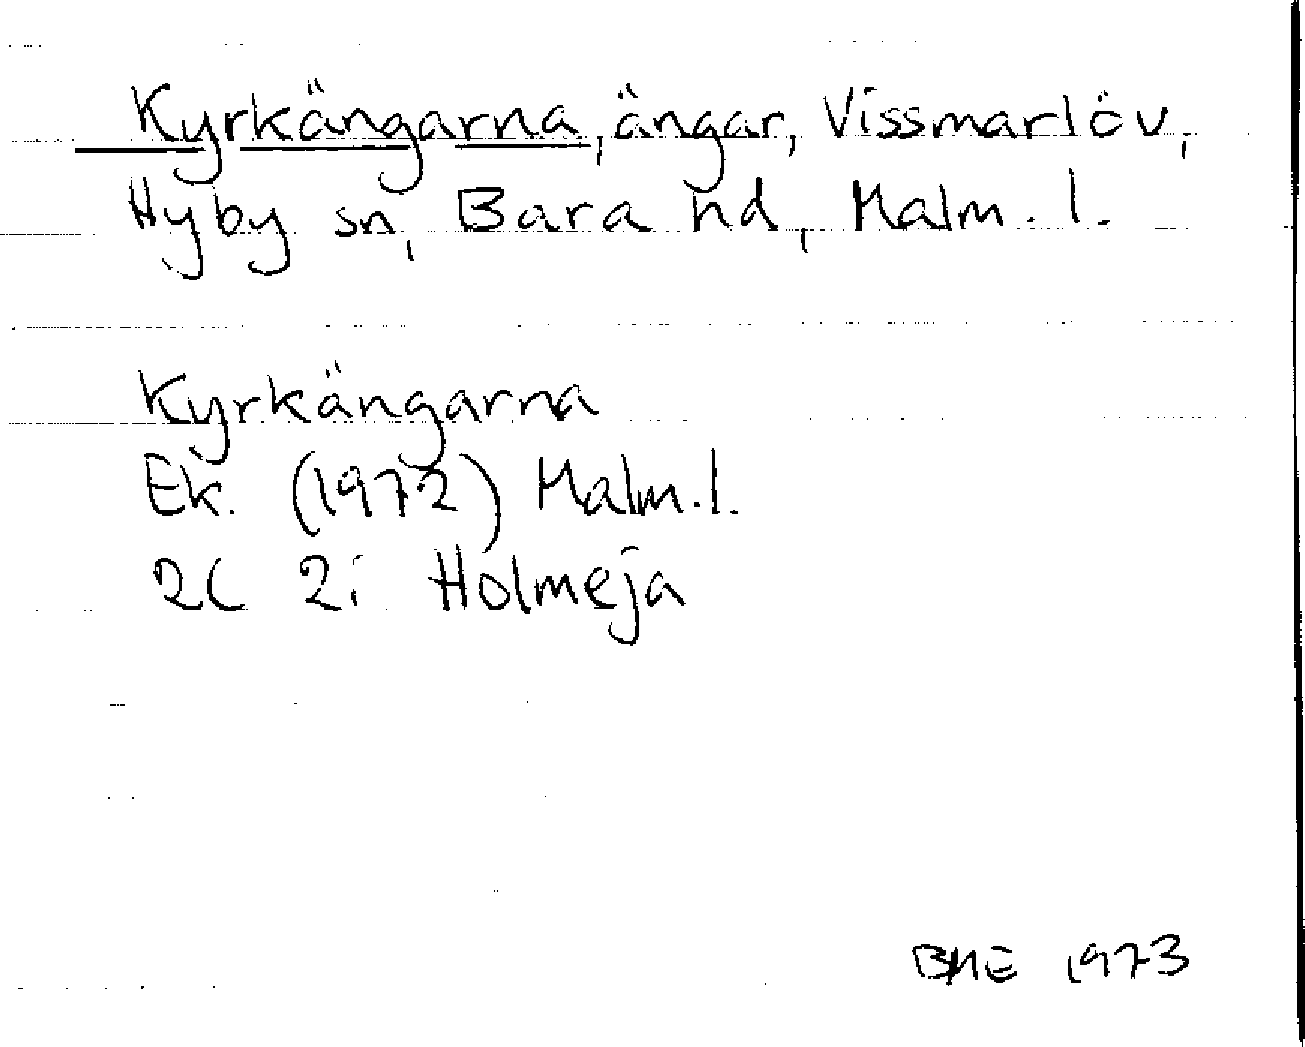 Kyrkängarna, ängar, Vissmarlöv,
Hyby sn, Bara hd, Malm. l.
Kyrkängarna
Ek. (1972) Malm. l.
2C 2i Holmeja
BME 1973